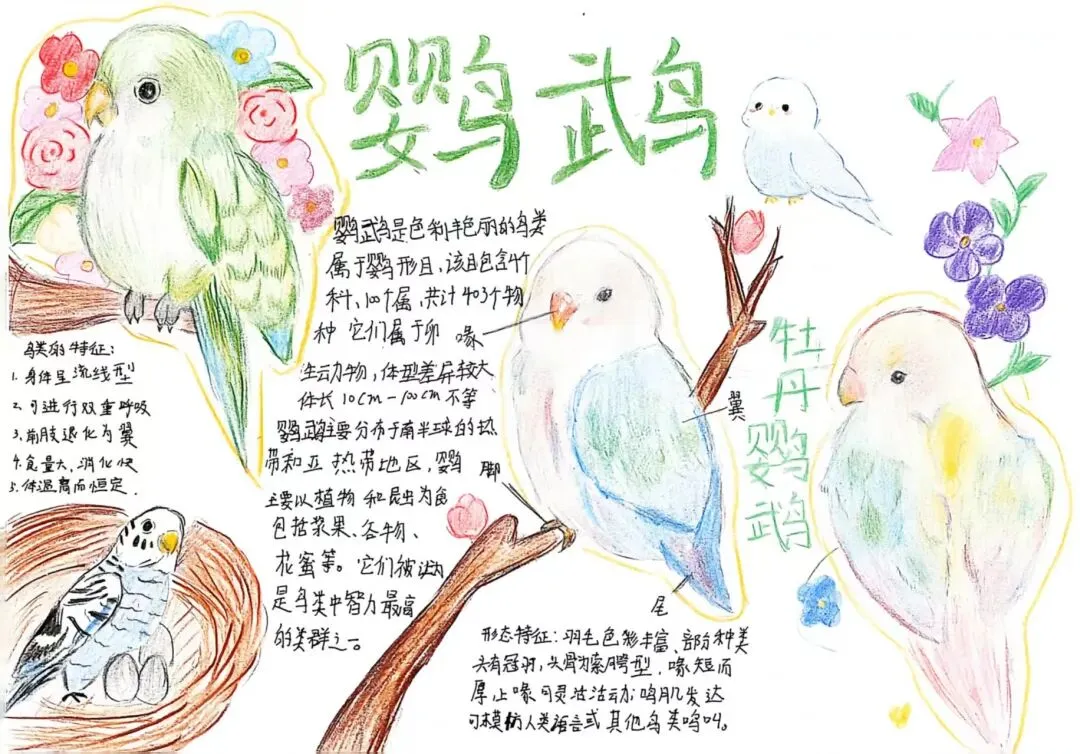 鹦鹉
鹦鹉是色彩丰艳丽的鸟类
属于鹦形目,该目包含4个
科、100个属,共计403个物
种 它们属于卵
生动物,体型差异较大
体长10cm-100cm不等
鹦鹉主要分布于南半球的热
带和亚热带地区,鹦鹉
主要以植物和昆虫为食
包括浆果、谷物、
花蜜等。它们被认为
是鸟类中智力最高
的类群之一。
喙
翼
脚
尾
牡丹鹦鹉
鸟类的特征:
1. 身体呈流线型
2. 可进行双重呼吸
3. 前肢退化为翼
4. 食量大、消化快
5. 体温高而恒定.
形态特征:羽毛色彩丰富、部分种类
头有冠羽,头骨为索腭型,喙短而
厚上喙可灵活活动;鸣肌发达
可模仿人类语言或其他鸟类鸣叫。